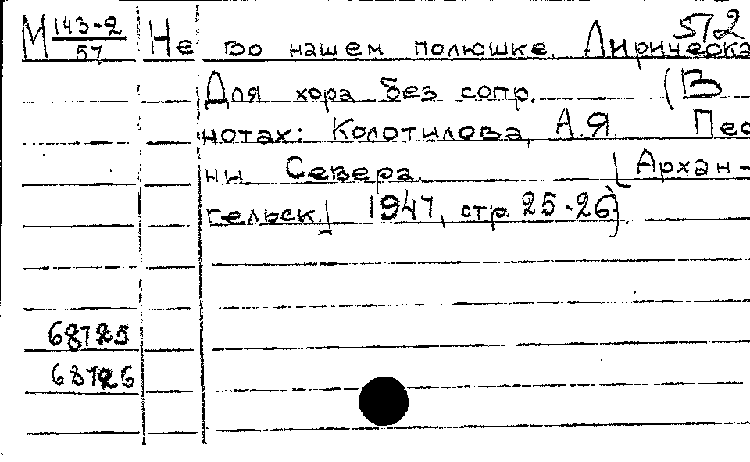 512
М 143-2/57 Не во нашем полюшке. Лирическа
Для хора без сопр. (В
нотах: Колотилова, А.Я Пес
ни Севера. [Архан-
гельск] 1947, стр. 25-26)
68725
68726